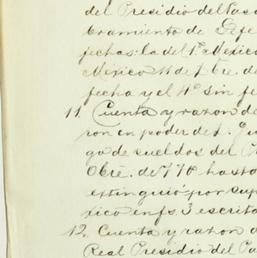 del Presidio del Paso
bramiento de Gefe
fechas: la del 1º Mexico
Mexico 11 de Dbre. de
fecha y el 4º sin fe
11. Cuenta y razon de
ron en poder de
go de sueldos del
Obre. de 770 hasta
extinguió por sup
xico en fs. 3 escrita
12. Cuenta y razon d
Real Presidio del Pa